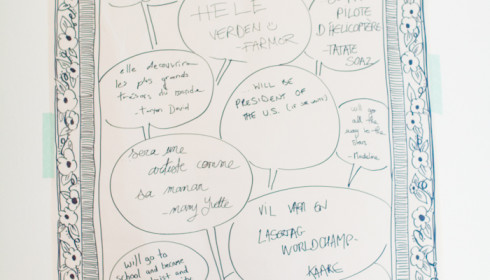 HELE
VERDEN
- FARMOR
PILOTE
D'HELICOPTÈRE
- TATATE
SOAZ
elle découvrira
les plus grands
trésors du monde
- Tonton David
WILL BE
PRESIDENT OF
THE U.S.
will go
all the
way to the
stars
- Madeleine
Sera une
artiste comme
sa maman
- Mamy Yvette
VIL VÆRE EN
LASERTAG
WORLDCHAMP.
KAARE
will go to
school and become